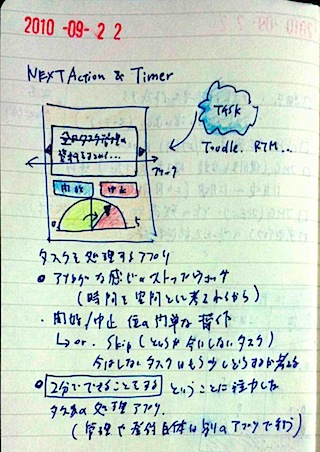 2010 -09- 2 2
NEXT Action & Timer
TASK
Toodle. RTM...
全ロタスク管理の
資料をまとめ...
フリック
開始
中止
0
5
タスクを処理するアプリ
アナログな感じのストップウォッチ
(時間を空間として考えれるから)
・開始/中止 位の簡単な操作
↳ or. Skip (とりあえず今はしないタスク)
今はしないタスクはもう少しどうするか考える
2分でできることをする ということに注力した
タスクの処理アプリ.
(管理や登録自体は別のアプリで行う)